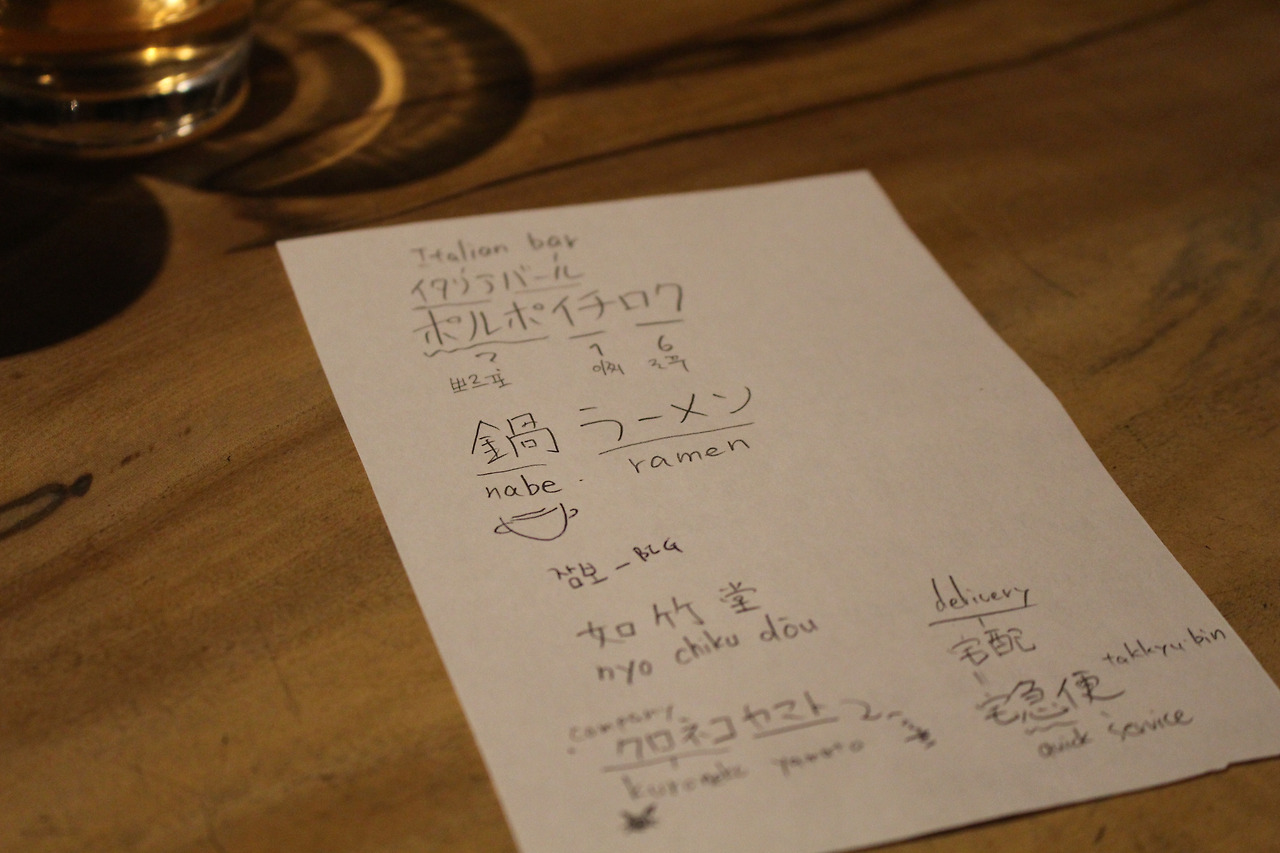 Italian bar
イタリラバール
ポルポイチロク
? 1 6
뽀르포 이찌 로꾸
鍋 ラーメン
nabe. ramen
잠보 - BIG
如竹堂
nyo chiku dōu
company
クロネコヤマト
kuroneko yamato
delivery
宅配
宅急便 takkyu-bin
quick service